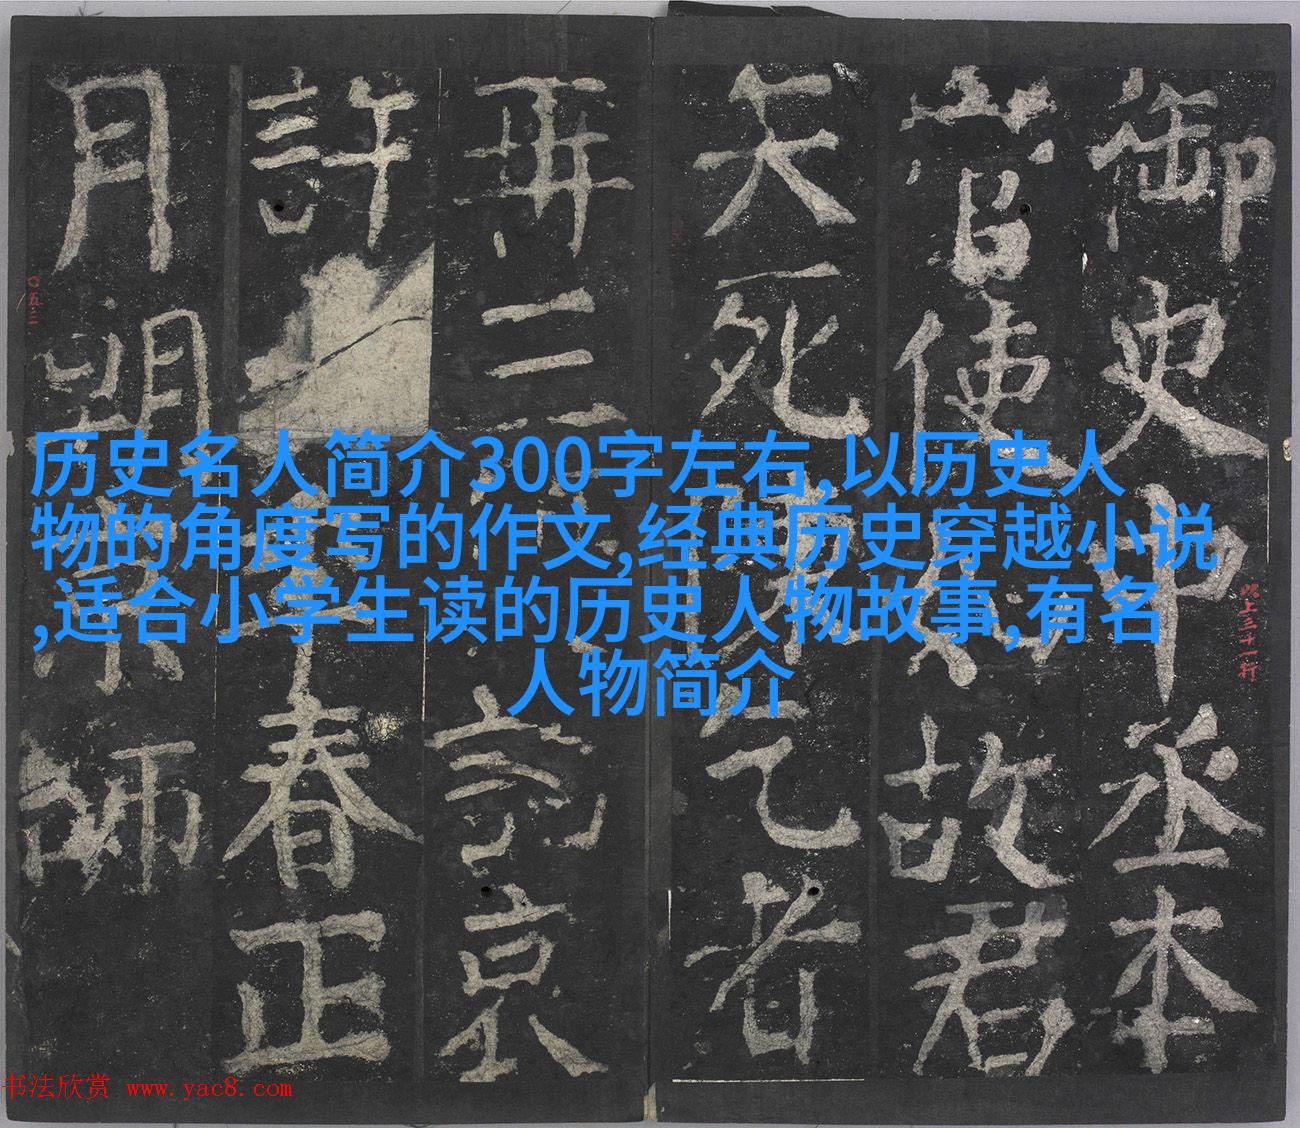 历史名人简介300字左右,以历史人
物的角度写的作文,经典历史穿越小说
,适合小学生读的历史人物故事,有名
人物简介
御史中丞本
使故君
死乞者
再三京
許春正
月朔師
以上三十一行
〇五三
书法欣赏 www.yac8.com